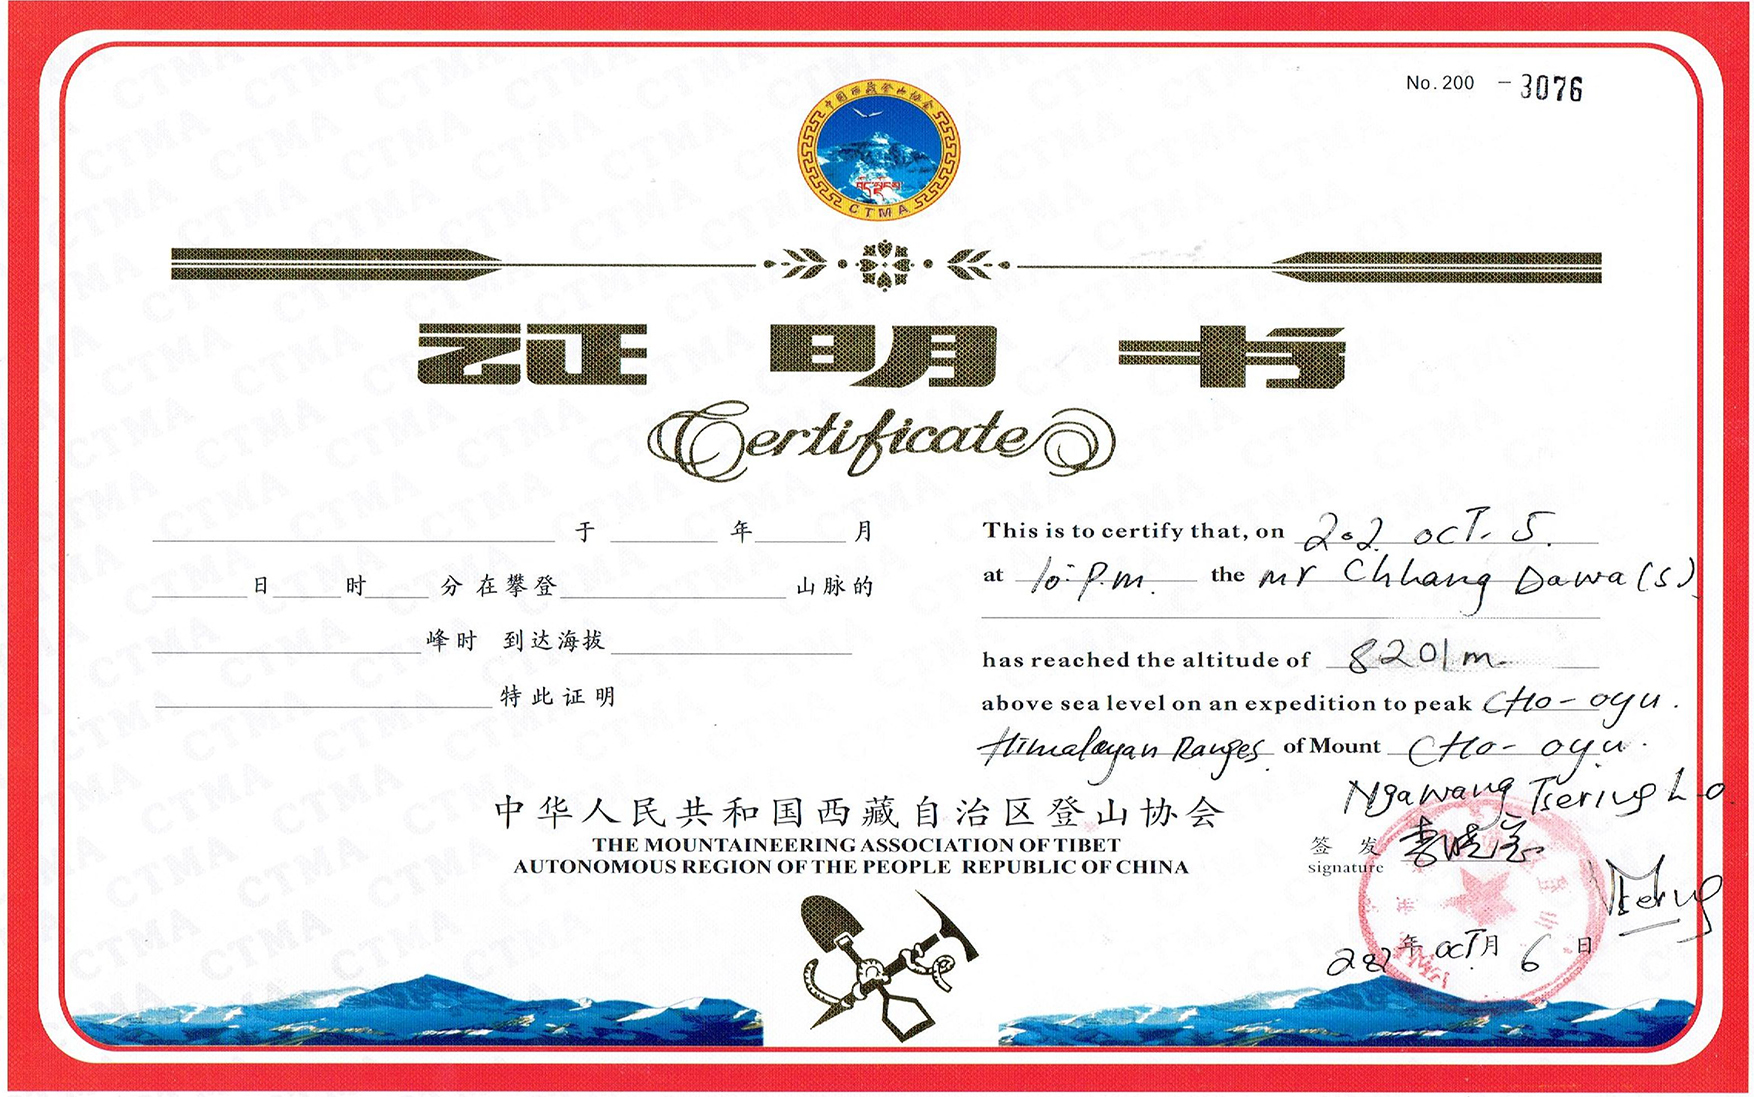 No.200 - 3076
中国西藏登山协会
CTMA
证明书
Certificate
于 年 月
日 时 分 在攀登 山脉的
峰时 到达海拔
特此证明
This is to certify that, on 202 OCT. 5.
at 10: P.m. the mr Chhang Dawa (S)
has reached the altitude of 8201m.
above sea level on an expedition to peak CHO-OYU.
Himalayan Ranges of Mount CHO-OYU.
Ngawang Tsering L.o.
中华人民共和国西藏自治区登山协会
THE MOUNTAINEERING ASSOCIATION OF TIBET
AUTONOMOUS REGION OF THE PEOPLE REPUBLIC OF CHINA
签 发
signature
年 OCT 月 6 日